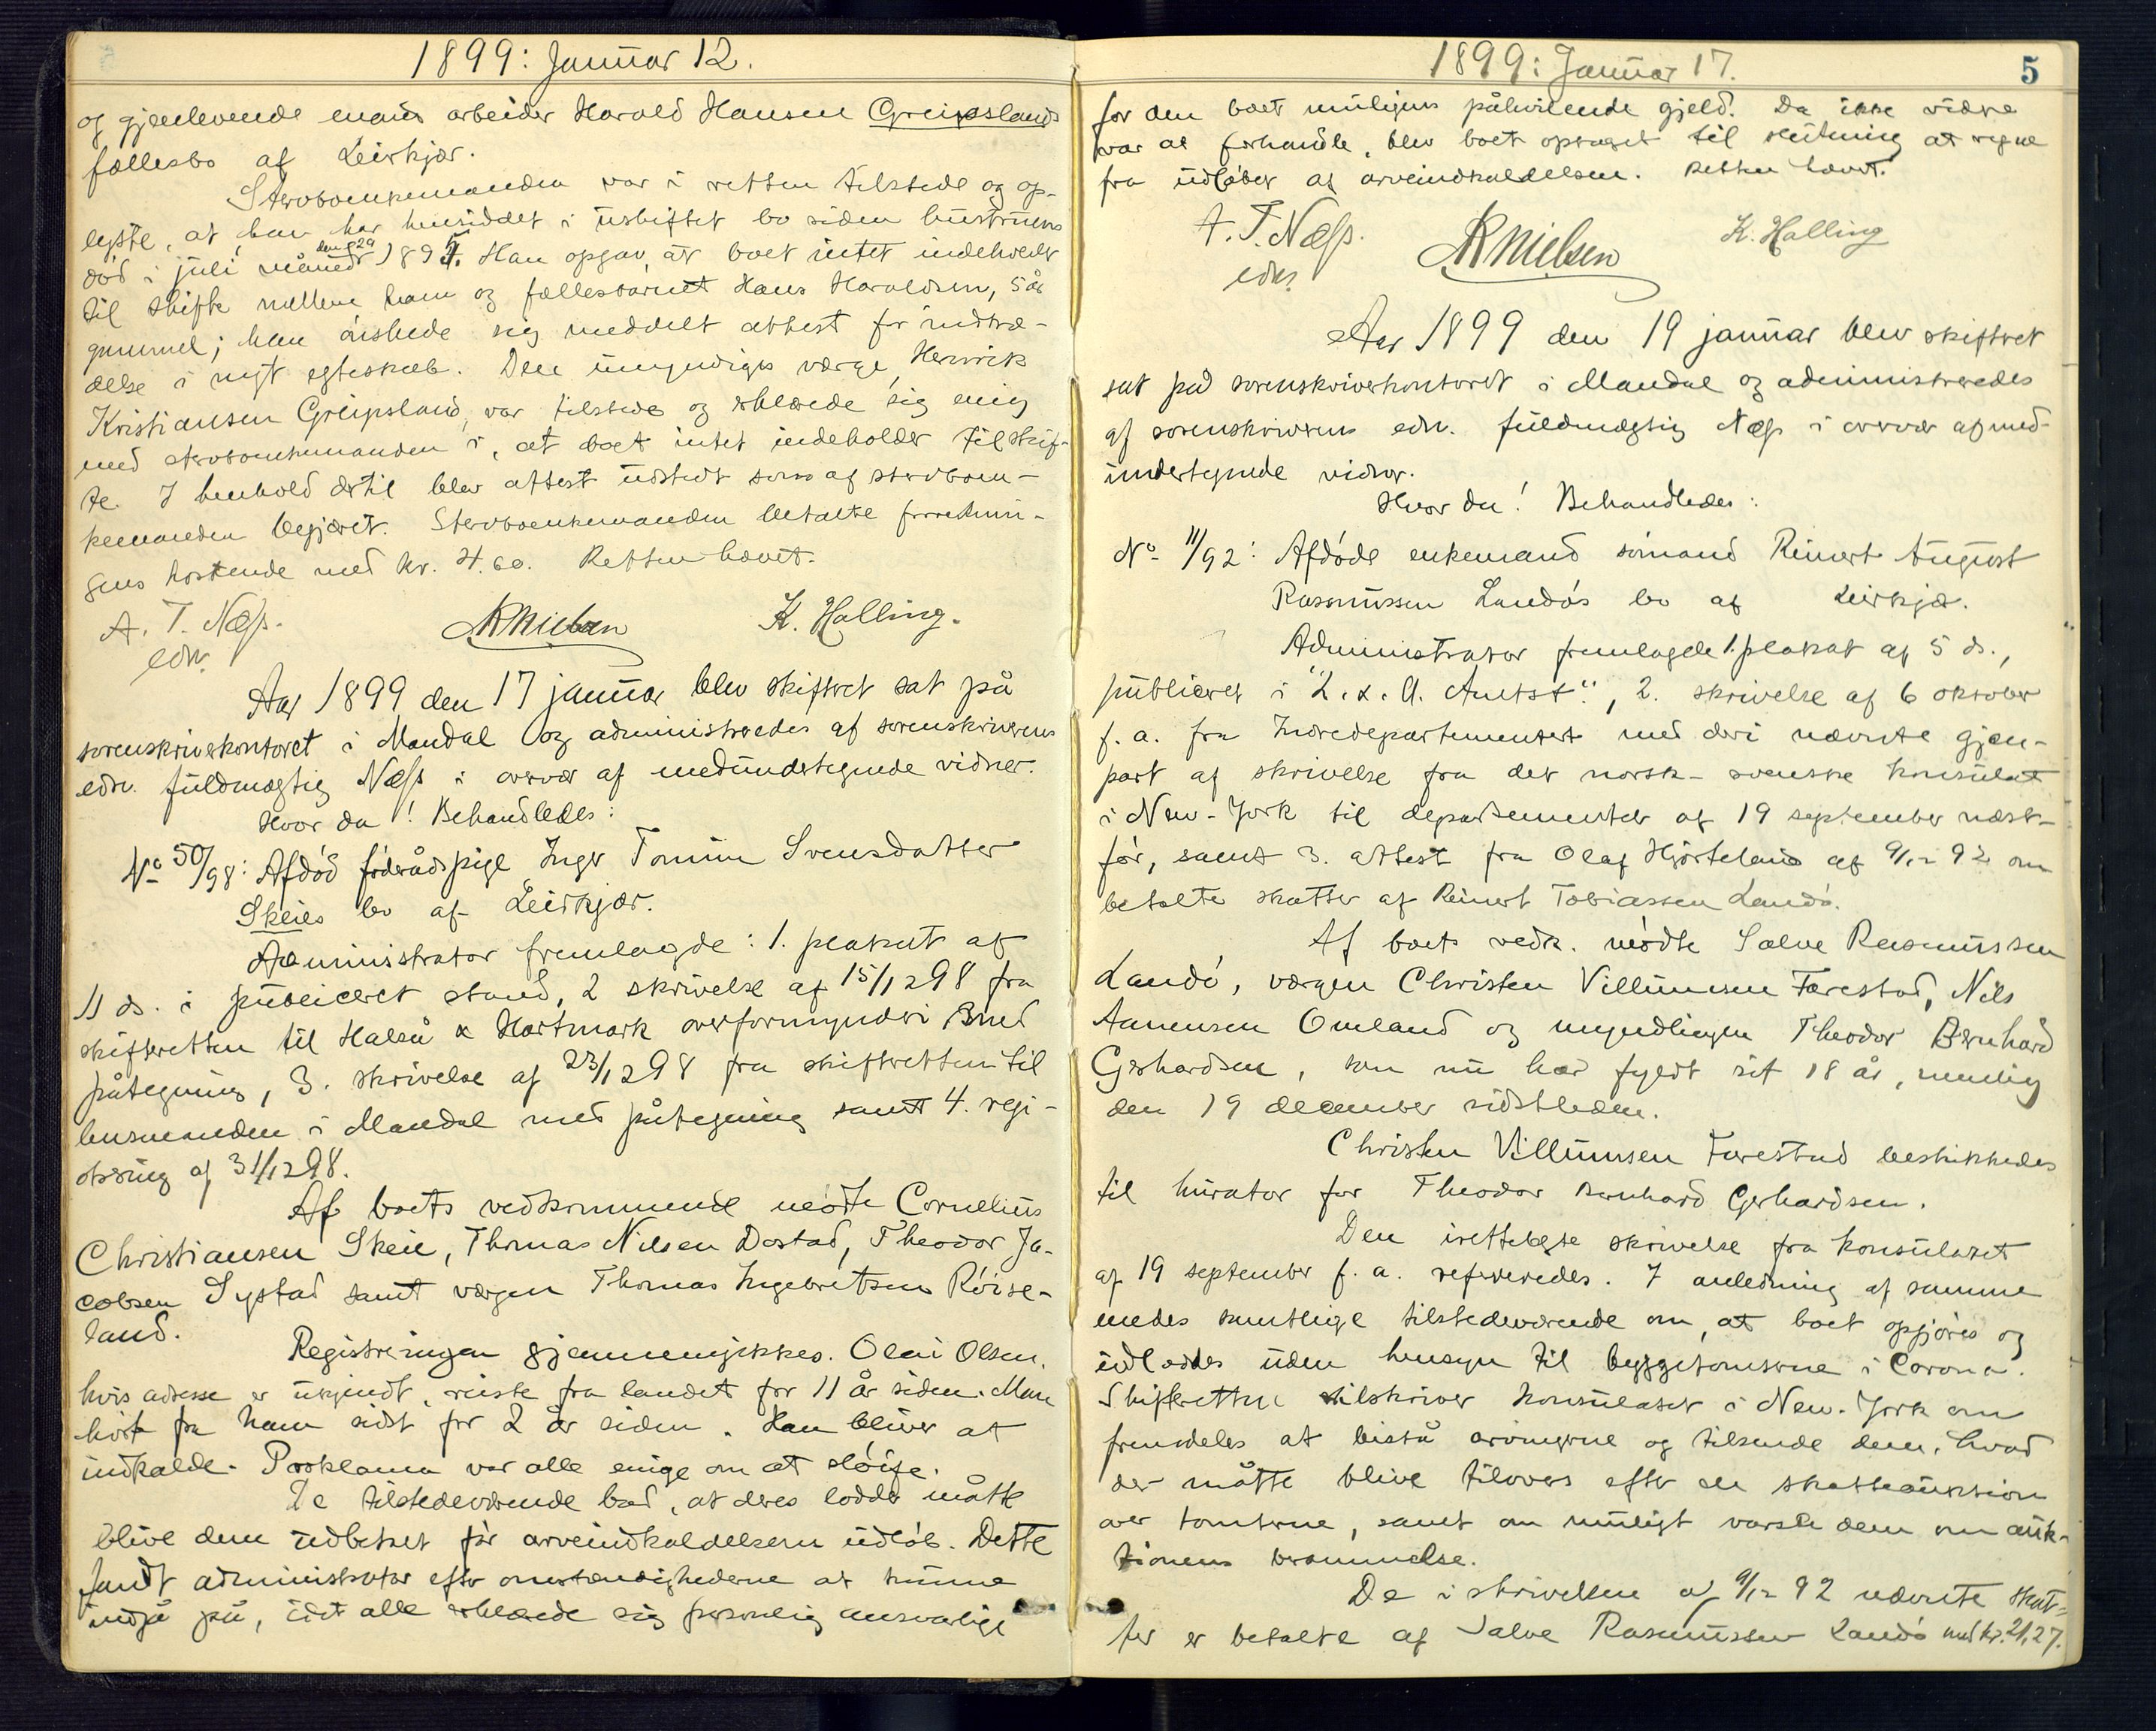 1899: Januar 12.
og gjenlevende mands arbeider Harald Hansen Greipslands
fællesbo af Leirkjær.
Stervboenkemanden var i retten tilstede og op-
lyste, at han har hensiddet i uskiftet bo siden hustruens
død i juli måned den 29 1895. Han opgav, at boet intet indeholder
til skifte mellem ham og fællesbarnet Hans Haraldsen, 5 år
gammel; han ønskede sig meddelt attest for indtræ-
delse i nyt egteskab. Den umyndiges værge, Henrik
Kristiansen Greipsland, var tilstede og erklærede sig enig
med stervboenkemanden i, at boet intet indeholder til skif-
te. I henhold dertil blev attest udstedt som af stervboen-
kemanden begjæret. Stervboenkemanden betalte forretnin-
gens kostende med kr. 4.60. Retten hævet.
A. T. Næss. ARNielsen K. Halling.
edsv.
Aar 1899 den 17 januar blev skiftret sat på
sorenskriverkontoret i Mandal og administreredes af sorenskriverens
edsv. fuldmægtig Næss i overvær af medundertegnede vidner.
Hvor da! Behandledes:
No 50/98: Afdød föderådspige Inger Tomine Svensdatter
Skeies bo af Leirkjær.
Administrator fremlagde: 1. plakat af
11 ds. i publiceret stand, 2 skrivelse af 15/12 98 fra
skifteretten til Halså & Hartmark overformynderi med
påtegning, 3. skrivelse af 23/12 98 fra skifteretten til
lensmanden i Mandal med påtegning samt 4. regi-
strering af 31/12 98.
Af boets vedkommende mødte Cornelius
Christiansen Skeie, Thomas Nilsen Dastad, Theodor Ja-
cobsen Systad samt værgen Thomas Ingebretsen Røise-
land.
Registreringen gjennemgikkes. Olai Olsen,
hvis adresse er ukjendt, reiste fra landet for 11 år siden. Man
hørt fra ham sidst for 2 år siden. Han bliver at
indkalde. Proklama var alle enige om at sløife.
De tilstedeværende bad, at deres lodder måtte
blive dem udbetalt før arveindkaldelsens udløb. Dette
fandt administrator efter omstændighederne at kunne
indgå på, idet alle erklærede sig personlig ansvarlige
1899: Januar 17.
5
for den boet muligens påhvilende gjeld. Da ikke videre
var at forhandle, blev boet optaget til slutning at regne
fra udløbet af arveindkaldelsen. Retten hævet.
A. T. Næss. ARNielsen K. Halling
edsv.
Aar 1899 den 19 januar blev skiftret
sat på sorenskriverkontoret i Mandal og administreredes
af sorenskriverens edsv. fuldmægtig Næss i overvær af med-
undertegnede vidner.
Hvor da! Behandledes:
No 11/92: Afdøde enkemand sømand Reinert August
Rasmussen Landøs bo af Leirkjær.
Administrator fremlagde 1. plakat af 5 ds.,
publiceret i "L. & M. Amtst.", 2. skrivelse af 6 oktober
f. a. fra Indredepartementet med deri nævnte gjen-
part af skrivelse fra det norsk-svenske konsulat
i New-York til departementet af 19 september næst-
før, samt 3. attest fra Olaf Hjorteland af 9/12 92 om
betalte skatter af Reinert Tobiassen Landø.
Af boets vedk. mødte Salve Rasmussen
Landø, værgen Christen Villumsen Farestad, Nils
Aanensen Omland og myndlingen Theodor Bernhard
Gerhardsen, som nu har fyldt sit 18 år, nemlig
den 19 december sidstleden.
Christen Villumsen Farestad beskikkedes
til kurator for Theodor Bernhard Gerhardsen.
Den irettelagte skrivelse fra konsulatet
af 19 september f. a. refereredes. I anledning af samme
enedes samtlige tilstedeværende om, at boet opgjøres og
udloddes uden hensyn til byggetomterne i Corona.
Skifteretten tilskriver konsulatet i New-York om
fremdeles at bistå arvingerne og tilsende dem, hvad
der måtte blive tilovers efter en skatteauktion
over tomterne, samt om muligt varsle dem om auk-
tionens berammelse.
De i skrivelsen af 9/12 92 nævnte skat-
ter er betalte af Salve Rasmussen Landø med kr. 21,27.